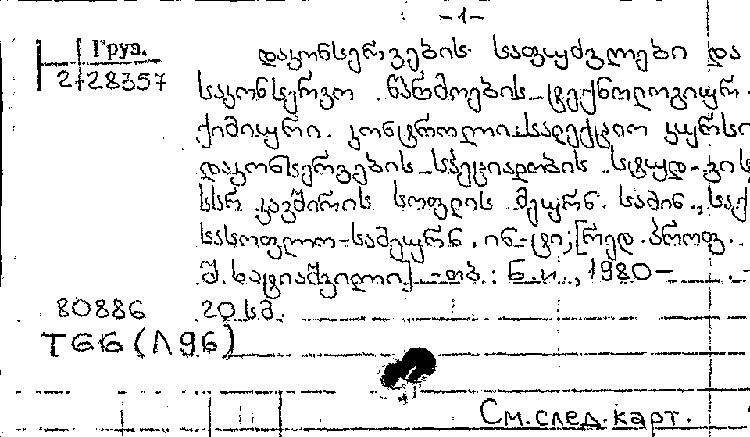 -1-
Груз.
2-28357
დაკონსერვების საფუძვლები და
საკონსერვო წარმოების ტექნოლოგიურ-
ქიმიური კონტროლი: სალექციო კურსი
დაკონსერვების სპეციალობის სტუდ-ვის
სსრ კავშირის სოფლის მეურნ. სამინ., საქ
სასოფლო-სამეურნ. ინ-ტი; [რედ. პროფ.
შ. ხატიაშვილი]. -თბ.: ნ.ი., 1980-
20 სმ.
80886
ТGG(Л96)
См. след. карт.